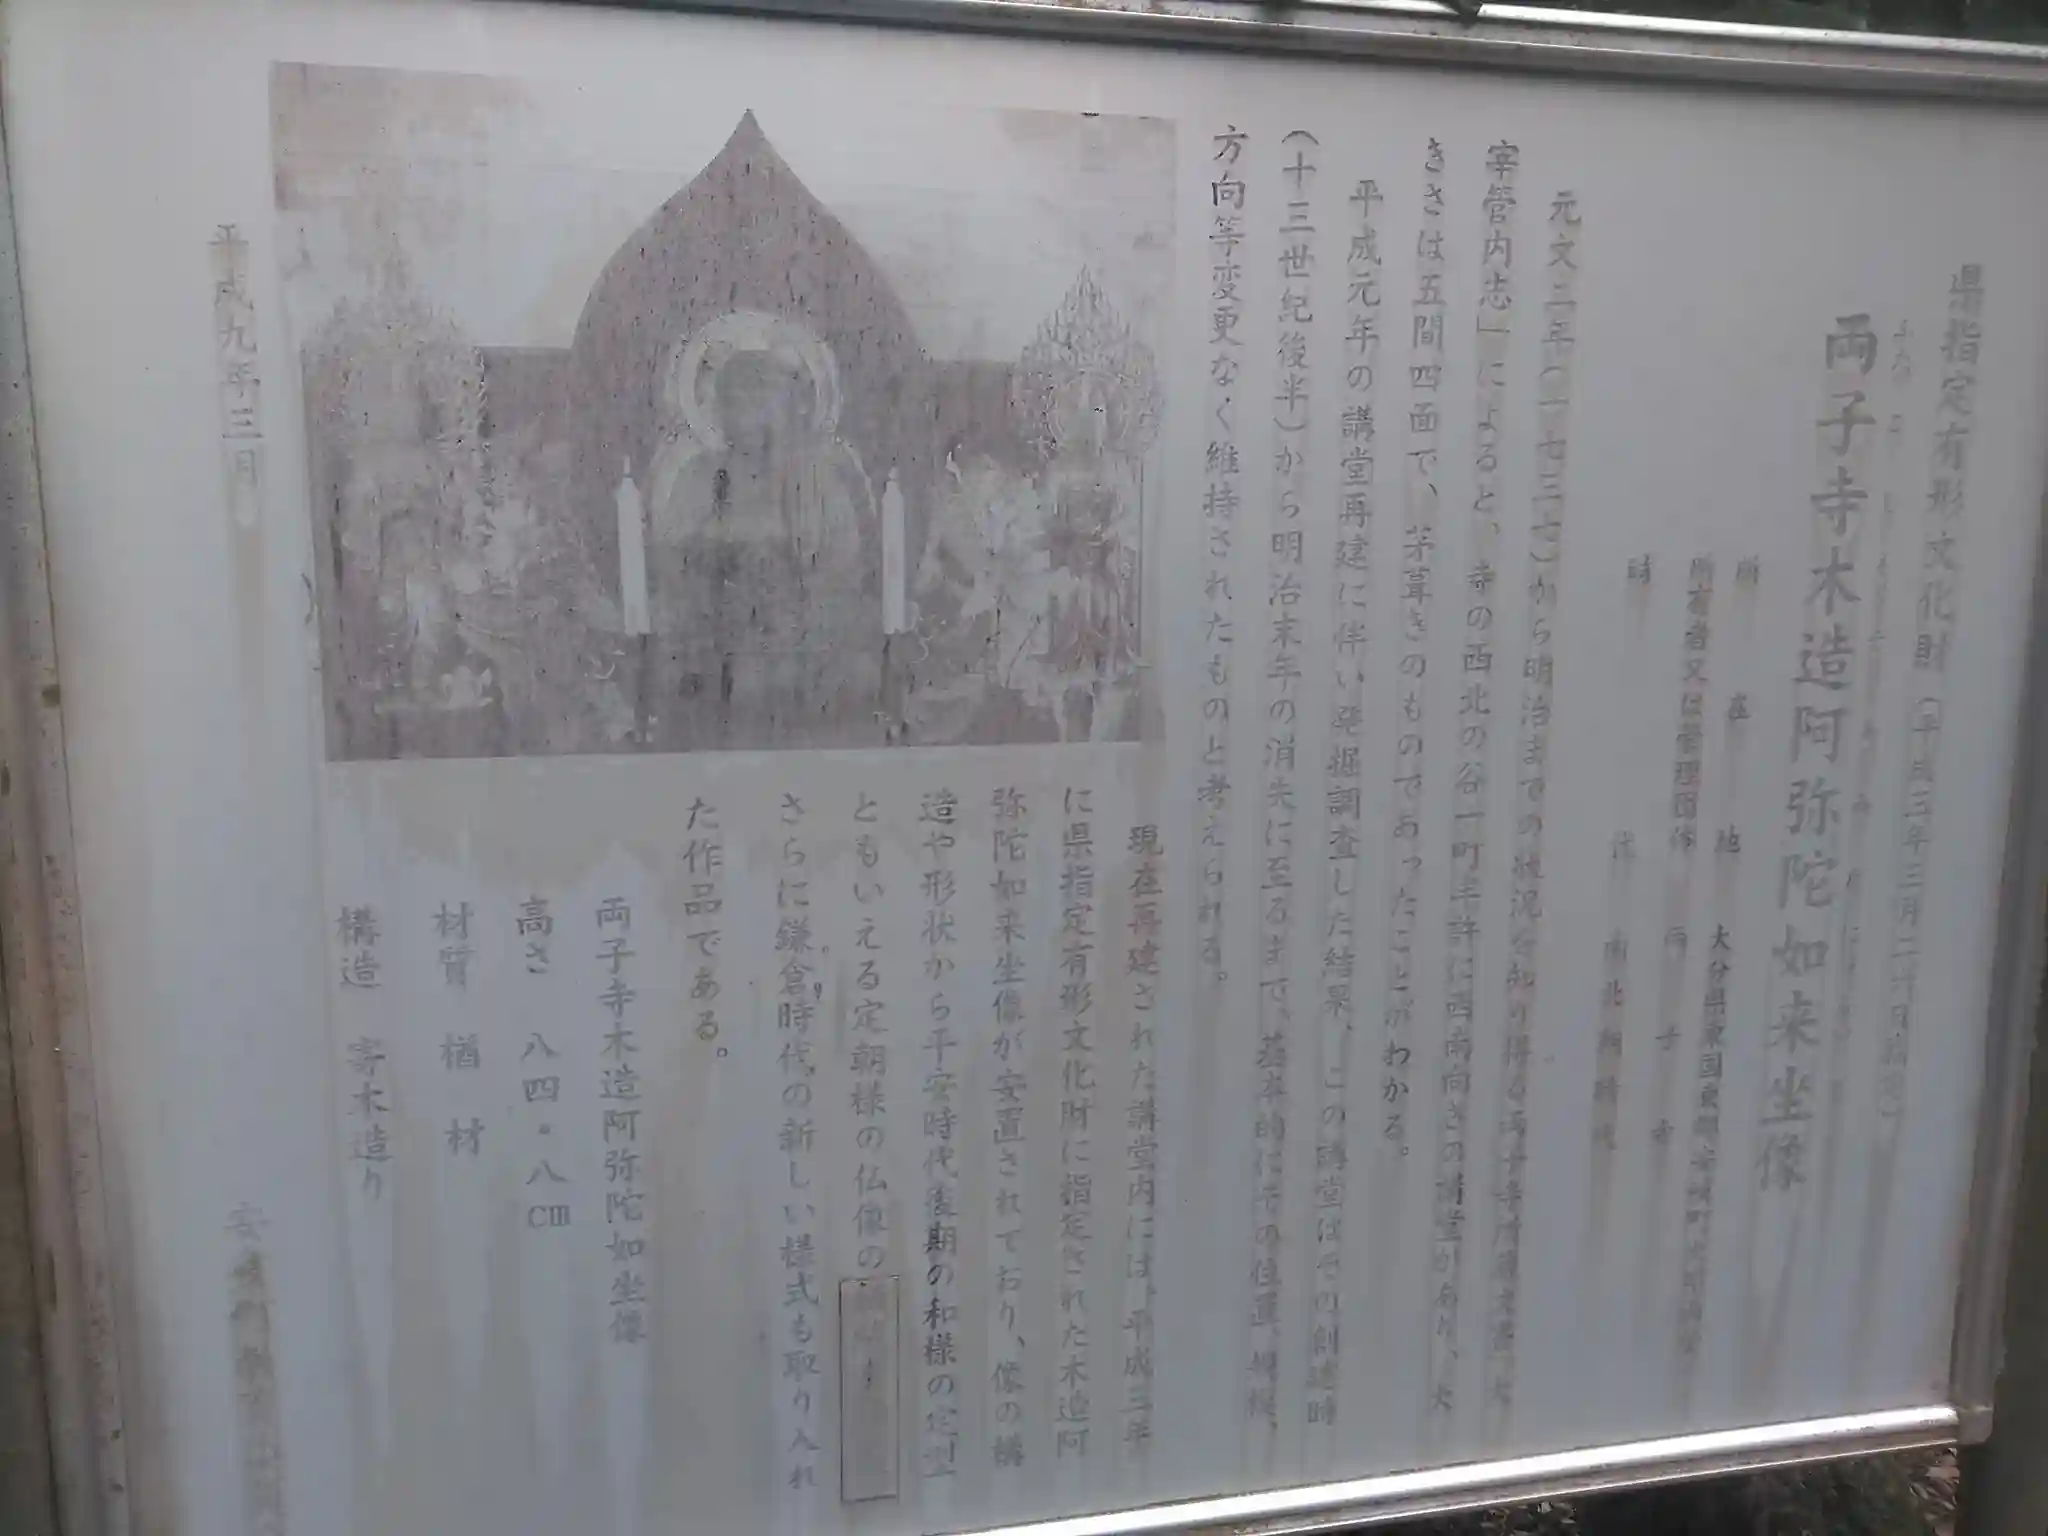 県指定有形文化財(平成三年三月二六日指定)
両子寺木造阿弥陀如来坐像
所在地 大分県東国東郡安岐町大字両子
所有者又は管理団体 両子寺
時代 南北朝時代
元文二年(一七三七)から明治までの状況を知り得る両子寺所蔵文書、太
宰管内志」によると、寺の西北の谷一町半許に西南向きの講堂があり、大
きさは五間四面で、茅葺きのものであったことがわかる。
平成元年の講堂再建に伴い発掘調査した結果、この講堂はその創建時
(十三世紀後半)から明治末年の消失に至るまで、基本的にその位置、規模、
方向等変更なく維持されたものと考えられる。
現在再建された講堂内には、平成三年
に県指定有形文化財に指定された木造阿
弥陀如来坐像が安置されており、像の構
造や形状から平安時代後期の和様の定型
ともいえる定朝様の仏像の
さらに鎌倉時代の新しい様式も取り入れ
た作品である。
両子寺木造阿弥陀如坐像
高さ 八四・八cm
材質 楢材
構造 寄木造り
平成九年三月
安岐町教育委員会